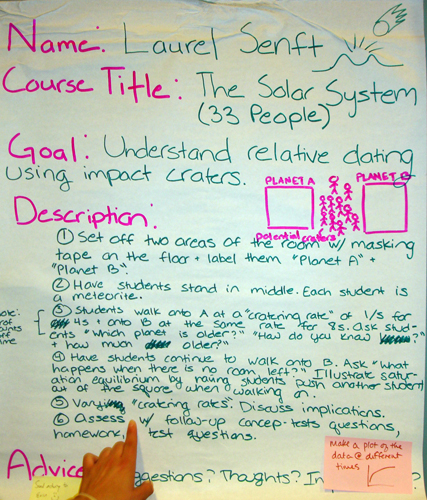 Name: Laurel Senft
Course Title: The Solar System
(33 People)
Goal: Understand relative dating
using impact craters.
PLANET A
PLANET B
potential craters
Description:
① Set off two areas of the room w/ masking
tape on the floor + label them "Planet A" +
"Planet B".
② Have students stand in middle. Each student is
a meteorite.
③ Students walk onto A at a "cratering rate" of 1/s for
4s + onto B at the same rate for 8s. Ask stud-
ents "Which planet is older?" "How do you know?"
+ how much older?"
④ Have students continue to walk onto B. Ask "What
happens when there is no room left?" Illustrate satur-
ation equilibrium by having students push another student
out of the square when walking on.
⑤ Vary "cratering rates". Discuss implications.
⑥ Assess w/ follow-up concep-tests questions,
homework, test questions.
Make a plot of the
data @ different
times
Advice: Suggestions? Thoughts?